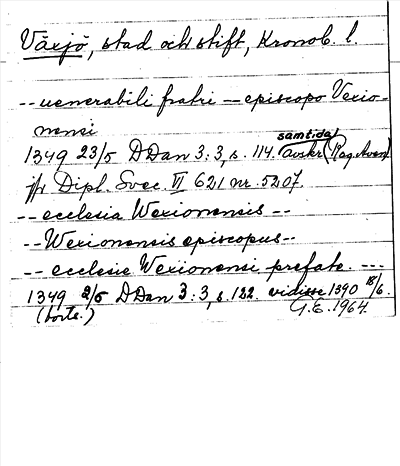 Växjö, stad och stift, Kronob. l.
-- uenerabili fratri -- episcopo Vexio-
nensi
samtida
1349 23/5 DDan 3:3, s. 114. avskr. (Reg. Aven)
jfr Dipl. Svec. VI 621 nr. 5207.
-- ecclesia Wexionensis --
-- Wexionensis episcopus --
-- ecclesie Wexionensi prefate. ---
1349 2/5 DDan 3:3, s. 122. vidisse 1390 18/6.
(borte.) G.E. 1964.